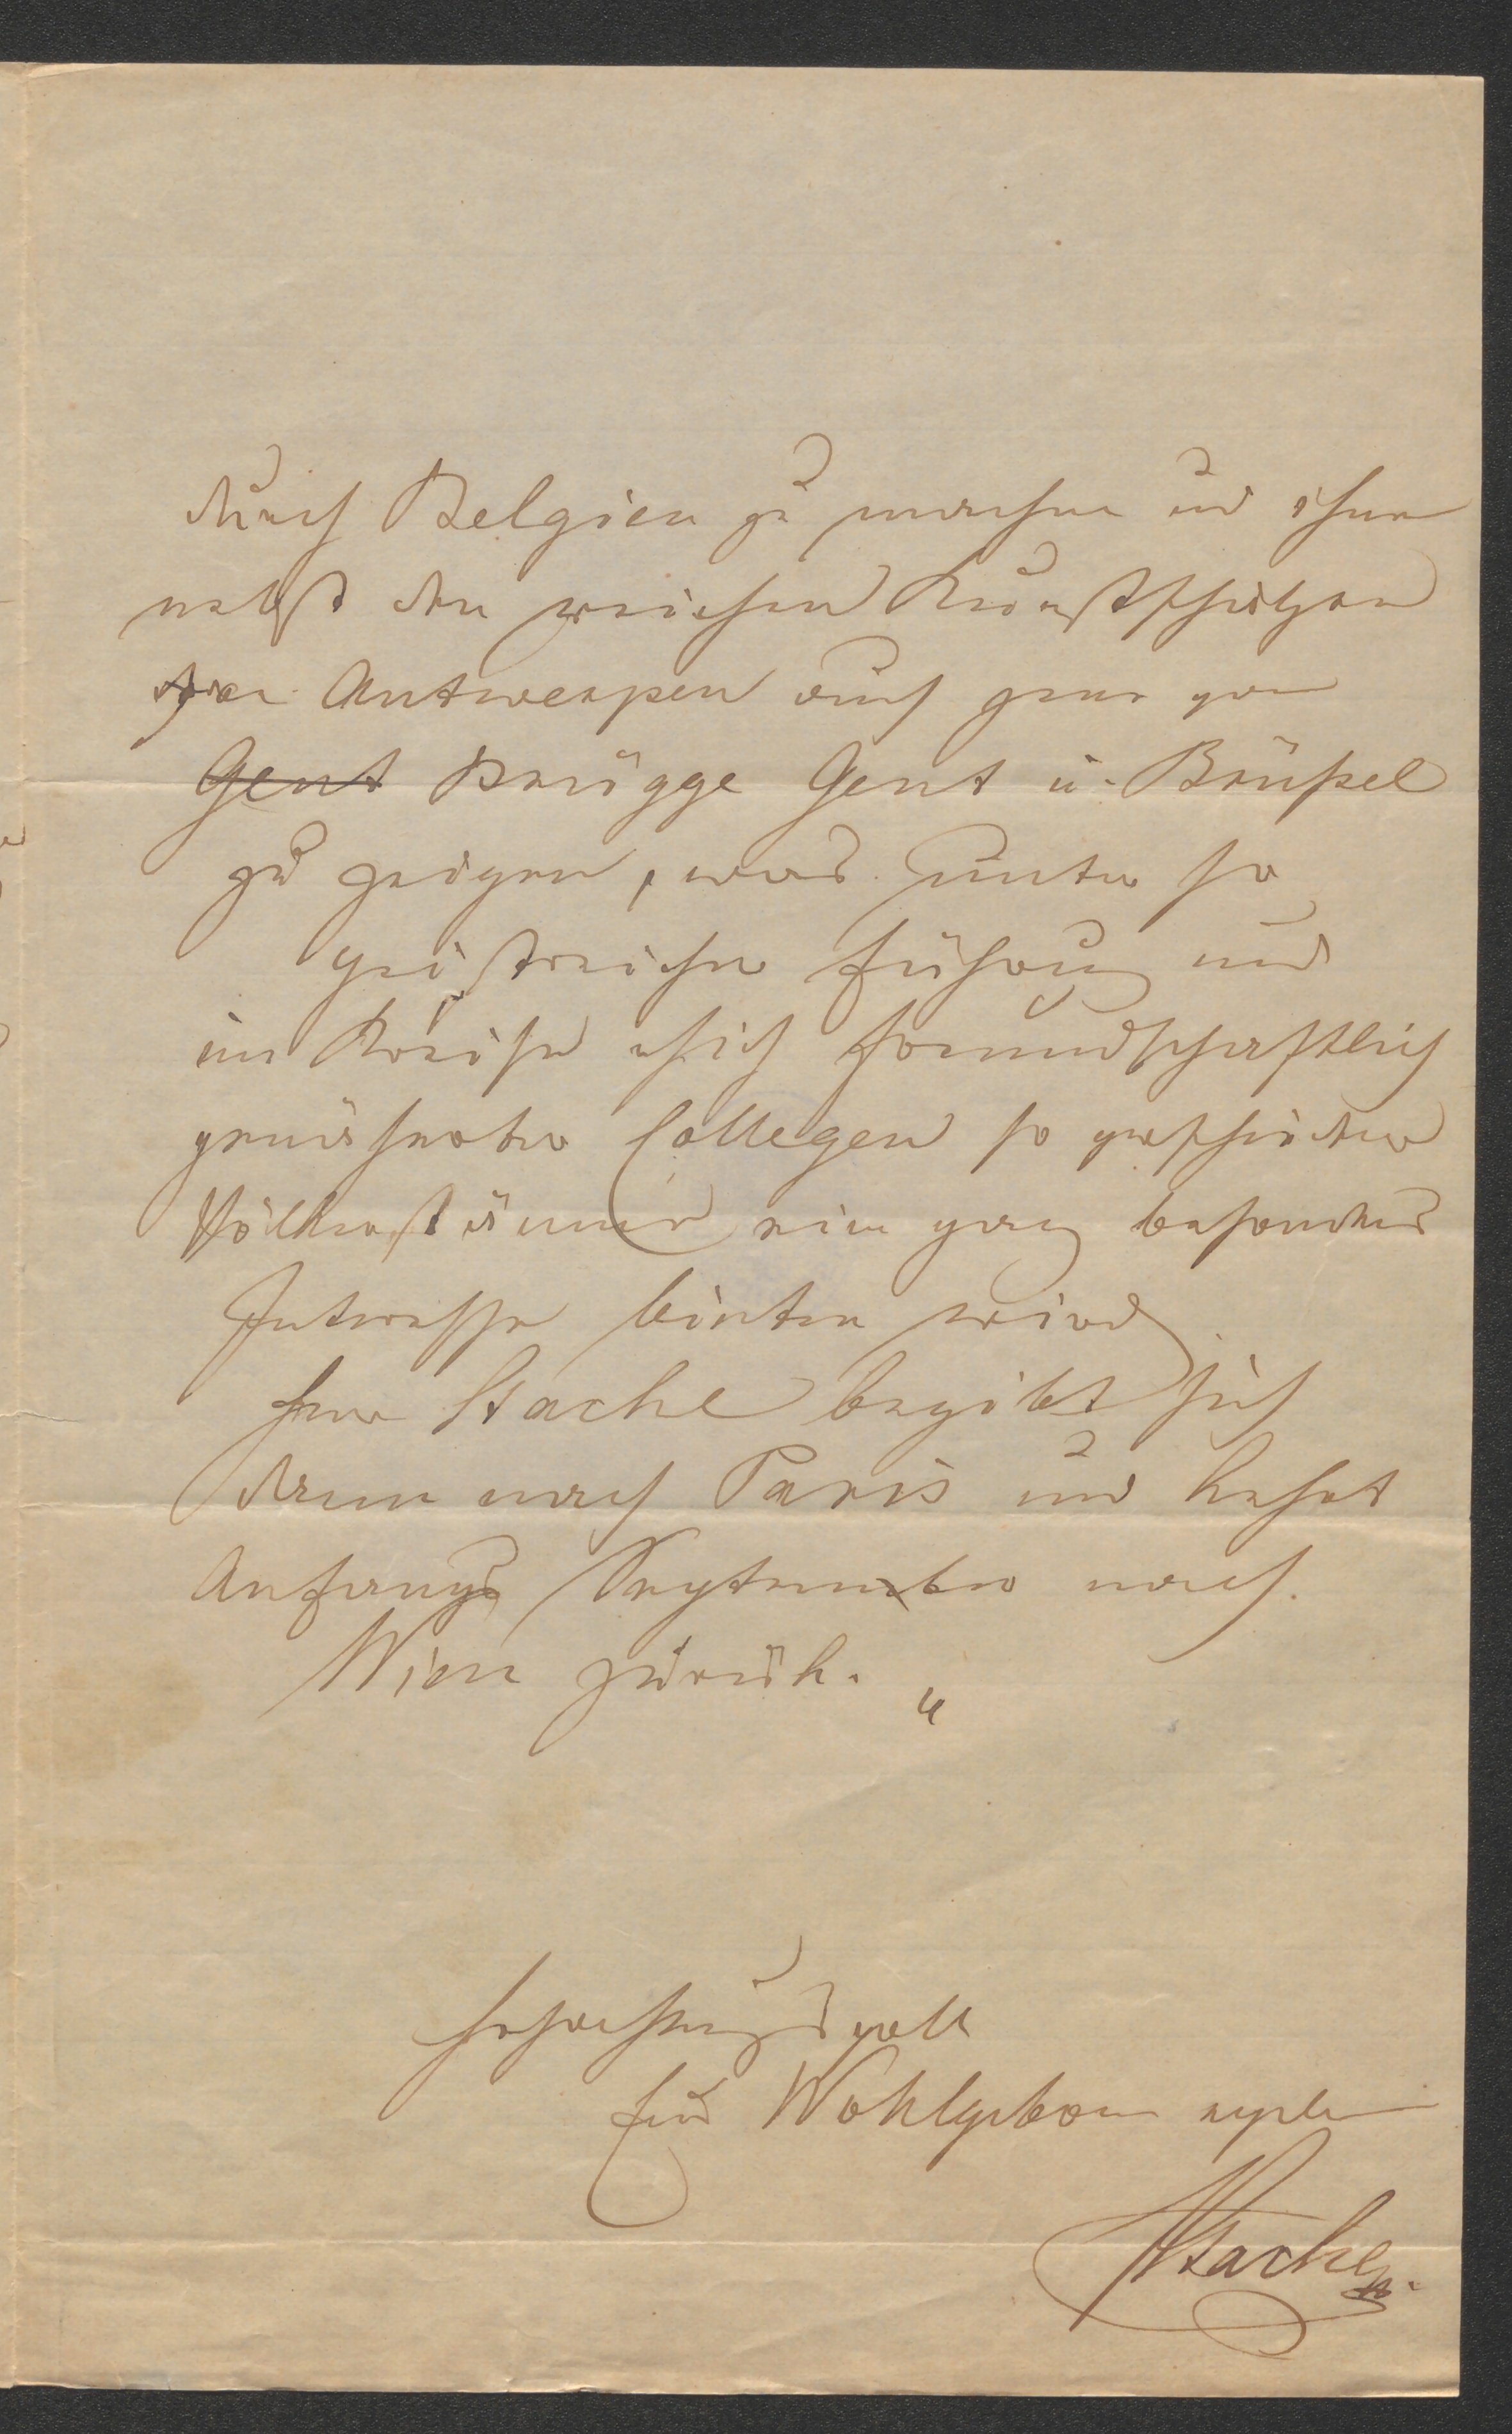 durch Belgien zu machen und ihnen
nebst den reichen Kunstschätzen
von Antwerpen auch jene von
Gent Brügge Gent u. Brüßel
zu zeigen, was unter so
geistreicher Führung und
im Kreise sich freundschaftlich
genäherter Collegen so verschiedener
Völkerstämme ein ganz besonderes
Interesse bieten wird.
Herr Stache begibt sich
dann nach Paris und kehrt
Anfangs September nach
Wien zurück. "
Hochachtungsvoll
Euer Wohlgeboren
Stache